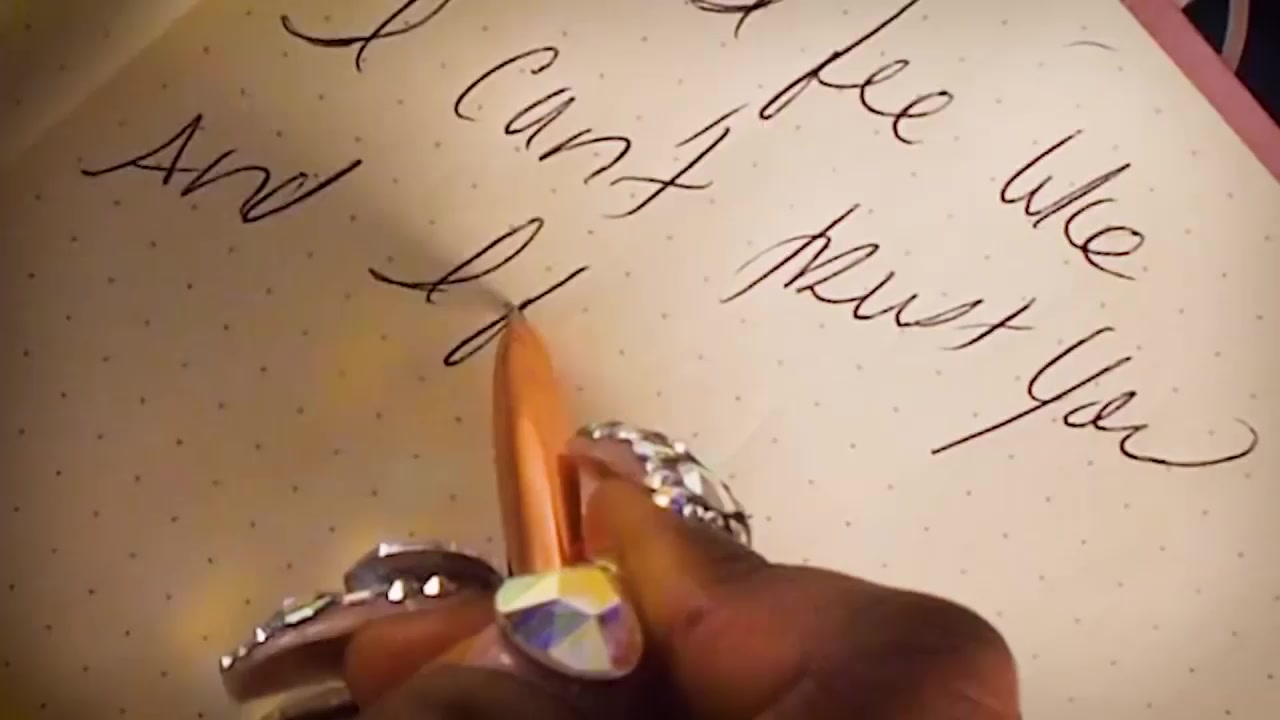 fee like
I Can't trust You
And If